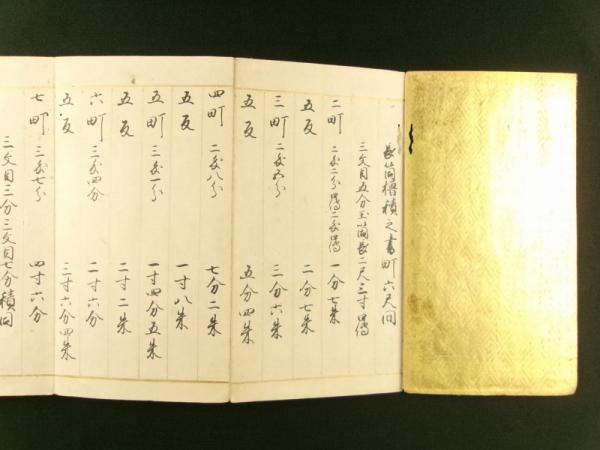 長筒櫓積之書町六尺間
三文目五分玉筒長二尺三寸
二町 一分七朱
五反 二分七朱
三町 三分六朱
五反 五分四朱
四町 二匁八分 七分二朱
五反 一寸八朱
五町 三匁一分 一寸四分五朱
五反 二寸二朱
六町 三匁四分 二寸六分
五反 三寸六分四朱
七町 三匁七分 四寸六分
三文目三分三文目七分積同